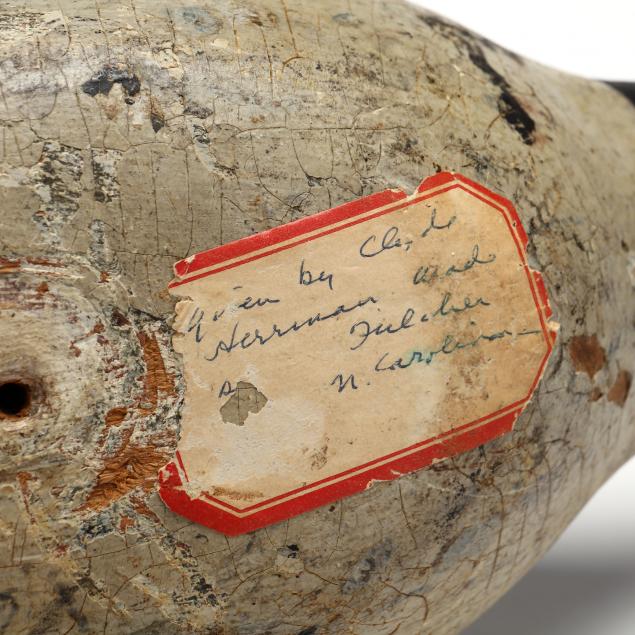 given by Clyde
Herrman mad
Fulcher
N. Carolina